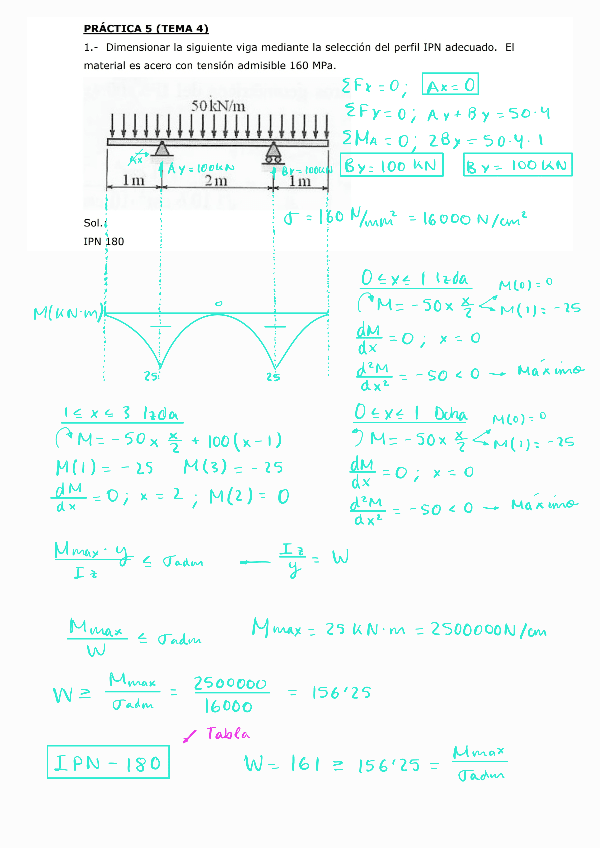 PRÁCTICA 5 (TEMA 4)
1.- Dimensionar la siguiente viga mediante la selección del perfil IPN adecuado. El
material es acero con tensión admisible 160 MPa.
ΣFx = 0; Ax = 0
50 kN/m
ΣFy = 0; Ay + By = 50·4
ΣMA = 0; 2By = 50·4·1
Ax
Ay = 100 KN
By = 100 KN
By = 100 KN
By = 100 KN
1m 2m 1m
σ = 160 N/mm² = 16000 N/cm²
Sol.:
IPN 180
M(KN·m)
0
25
25
0 ≤ x ≤ 1 Izda
M = -50x x/2
M(0) = 0
M(1) = -25
dM/dx = 0; x = 0
d²M/dx² = -50 < 0 → Máximo
1 ≤ x ≤ 3 Izda
M = -50x x/2 + 100(x-1)
M(1) = -25 M(3) = -25
dM/dx = 0; x = 2; M(2) = 0
0 ≤ x ≤ 1 Dcha
M = -50x x/2
M(0) = 0
M(1) = -25
dM/dx = 0; x = 0
d²M/dx² = -50 < 0 → Máximo
Mmax · y/Iz ≤ σadm — Iz/y = W
Mmax/W ≤ σadm Mmax = 25 KN·m = 2500000 N/cm
W ≥ Mmax/σadm = 2500000/16000 = 156'25
Tabla
IPN - 180 W = 161 ≥ 156'25 = Mmax/σadm